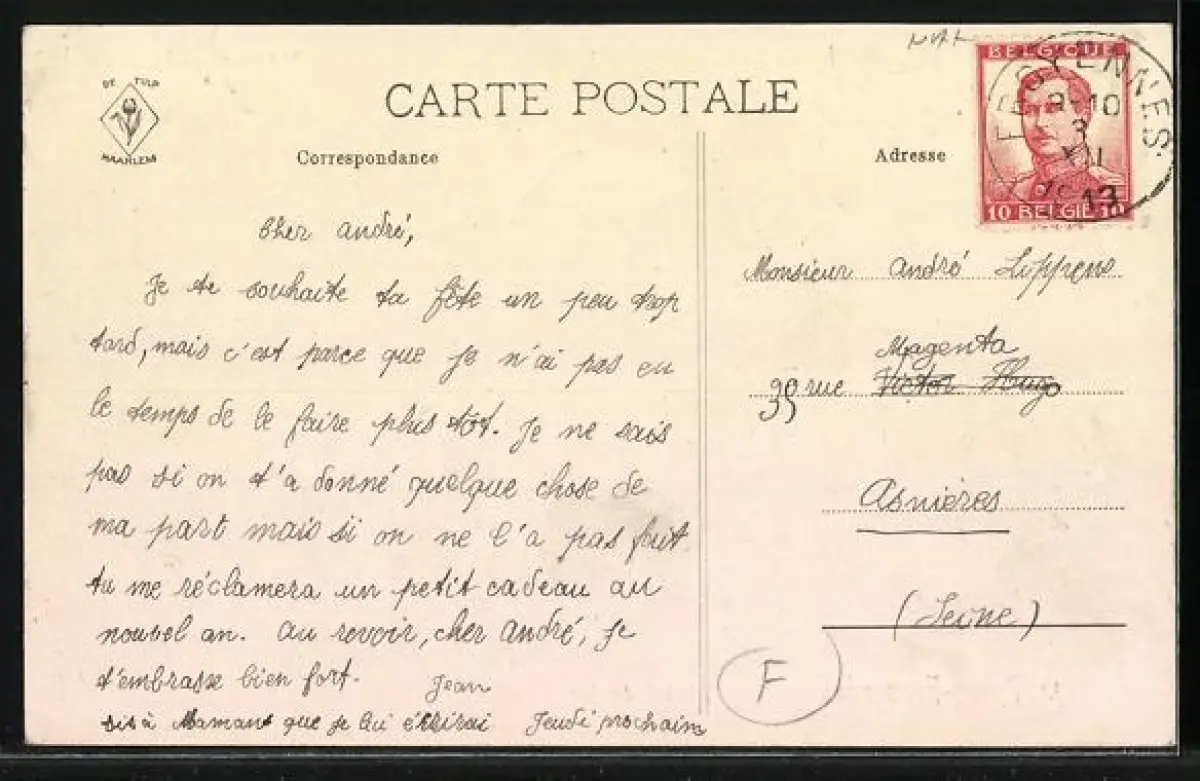 DE TULP
HAARLEM
CARTE POSTALE
Correspondance
Cher André,
Je te souhaite ta fête un peu trop
tard, mais c'est parce que je n'ai pas eu
le temps de le faire plus tôt. Je ne sais
pas si on t'a donné quelque chose de
ma part mais si on ne l'a pas fait
tu me réclamera un petit cadeau au
nouvel an. Au revoir, cher André, je
t'embrasse bien fort.
Jean
dis à Maman que je lui écrirai Jeudi prochain
Adresse
BELGIQUE
10 BELGIE 10
ESTYENNES
9-10
3
XII
1913
Monsieur André Lippens
Magenta
rue Victor Hugo
Asnières
(Seine)
F